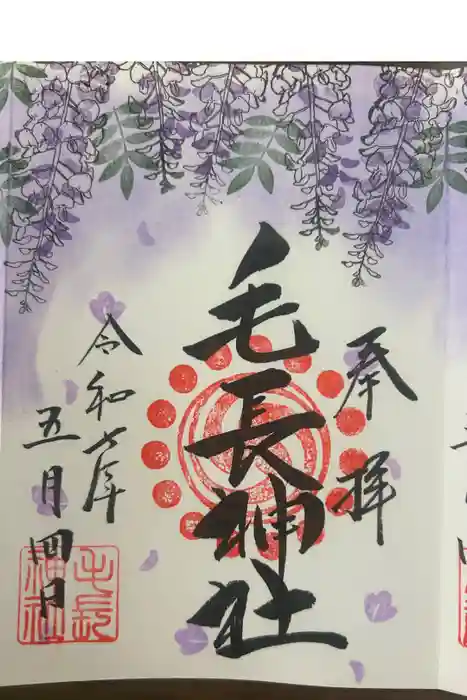 奉拝
毛長神社
令和七年
五月四日
毛長
神社